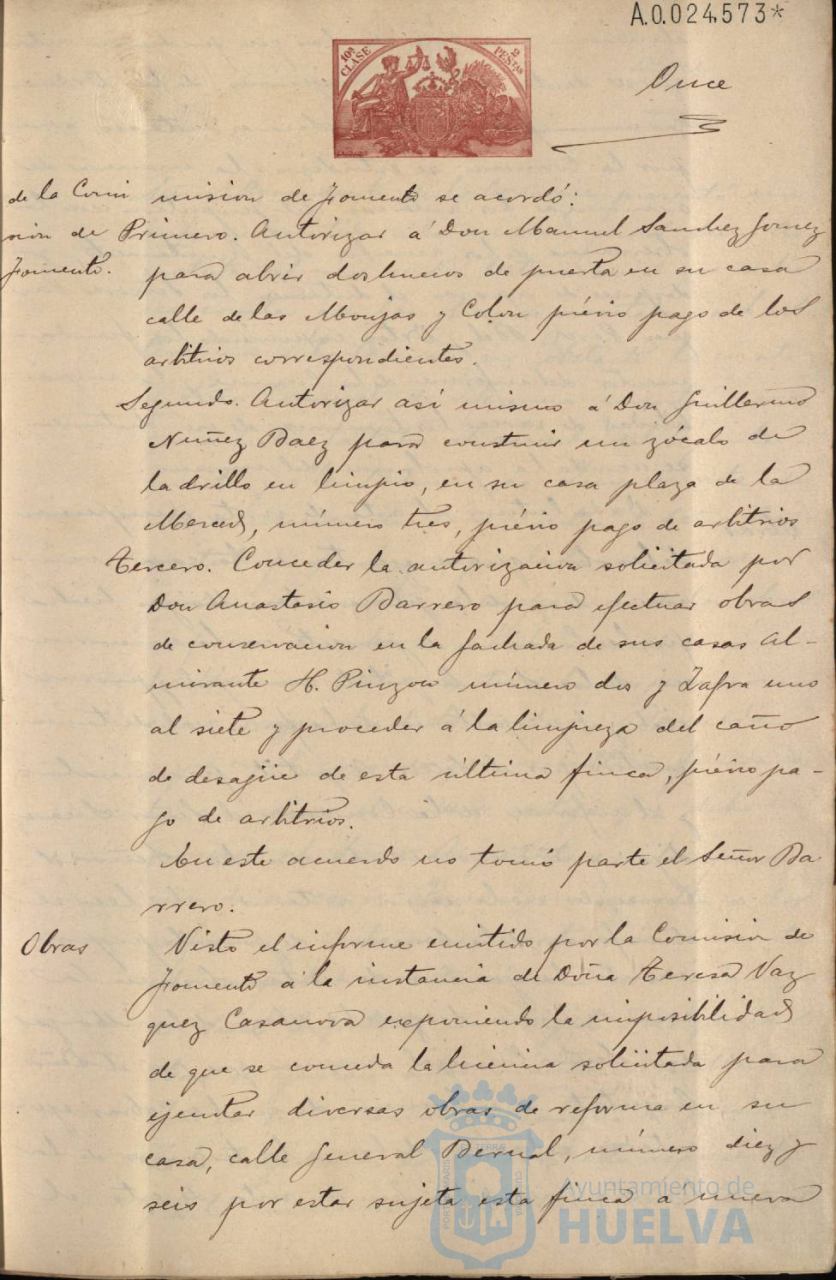 A.0.024,573*
10ª CLASE
2 PESTAS
Once
de la Comi
sion de
Fomento.
mision de Fomento se acordó:
Primero. Autorizar á Don Manuel Sanchez Gomez
para abrir dos huecos de puerta en su casa
calle de las Monjas y Colon, prévio pago de los
arbitrios correspondientes.
Segundo. Autorizar así mismo á Don Guillermo
Nuñez Baez para construir un zócalo de
ladrillo en limpio, en su casa plaza de la
Merced, número tres, prévio pago de arbitrios
Tercero. Conceder la autorizacion solicitada por
Don Anastasio Barrero para efectuar obras
de conservacion en la fachada de sus casas Al-
mirante H. Pinzon número dos y Zafra uno
al siete y proceder á la limpieza del caño
de desagüe de esta última finca, prévio pa-
go de arbitrios.
En este acuerdo no tomó parte el Señor Ba
rrero.
Obras
Visto el informe emitido por la Comision de
Fomento á la instancia de Doña Teresa Vaz
quez Casanova exponiendo la imposibilidad
de que se conceda la licencia solicitada para
ejecutar diversas obras de reforma en su
casa, calle General Bernal, número diez y
seis por estar sujeta esta finca a nueva
Ayuntamiento de
HUELVA